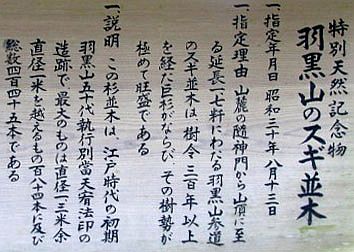 特別天然記念物
羽黒山のスギ並木
一、指定年月日 昭和三十年八月十三日
一、指定理由 山麓の随神門から山頂に至
る延長一七粁にわたる羽黒山参道
のスギ並木は、樹令三百年以上
を経た巨杉がならび、その樹勢が
極めて旺盛である
一、説明 この杉並木は、江戸時代の初期
羽黒山五十代執行別當天宥法印の
造跡で、最大のものは直径一三米余
直径一米を越えるもの百八十四本に及び
総数四百四十五本である